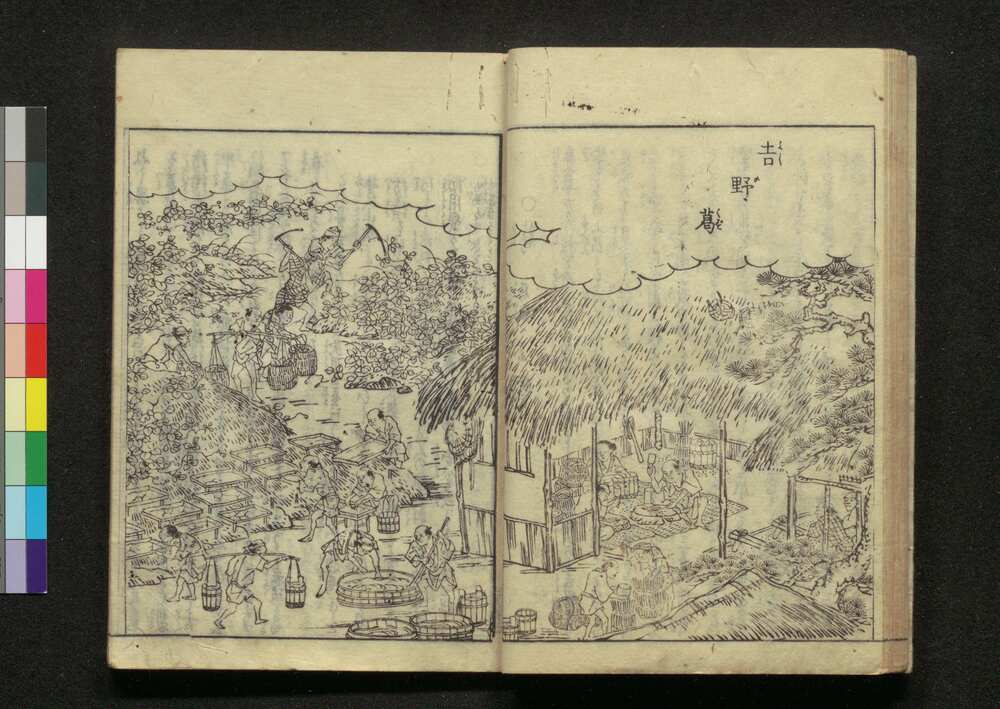 吉野葛